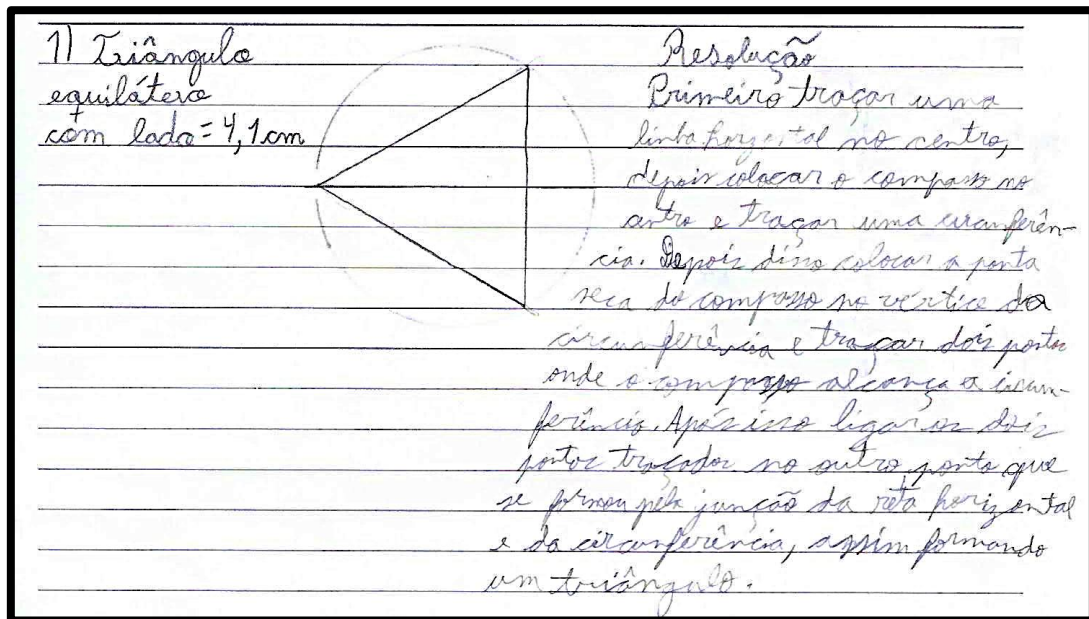 1) Triângulo
equilátero
com lado = 4,1 cm
Resolução
Primeiro traçar uma
linha horizontal no centro,
depois colocar o compasso no
centro e traçar uma circunferên-
cia. Depois disso colocar a ponta
seca do compasso no vértice da
circunferência e traçar dois pontos
onde o compasso alcança a circun-
ferência. Após isso ligar os dois
pontos traçados no outro ponto que
se formou pela junção da reta horizontal
e da circunferência, assim formando
um triângulo.